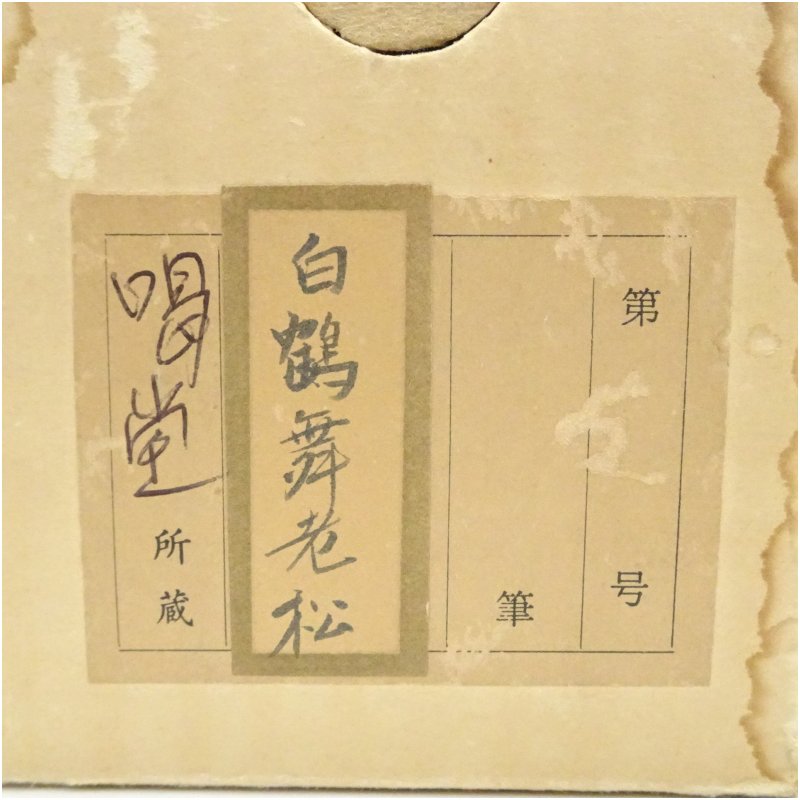 第 号
筆
白鶴舞老松
喝堂 所蔵